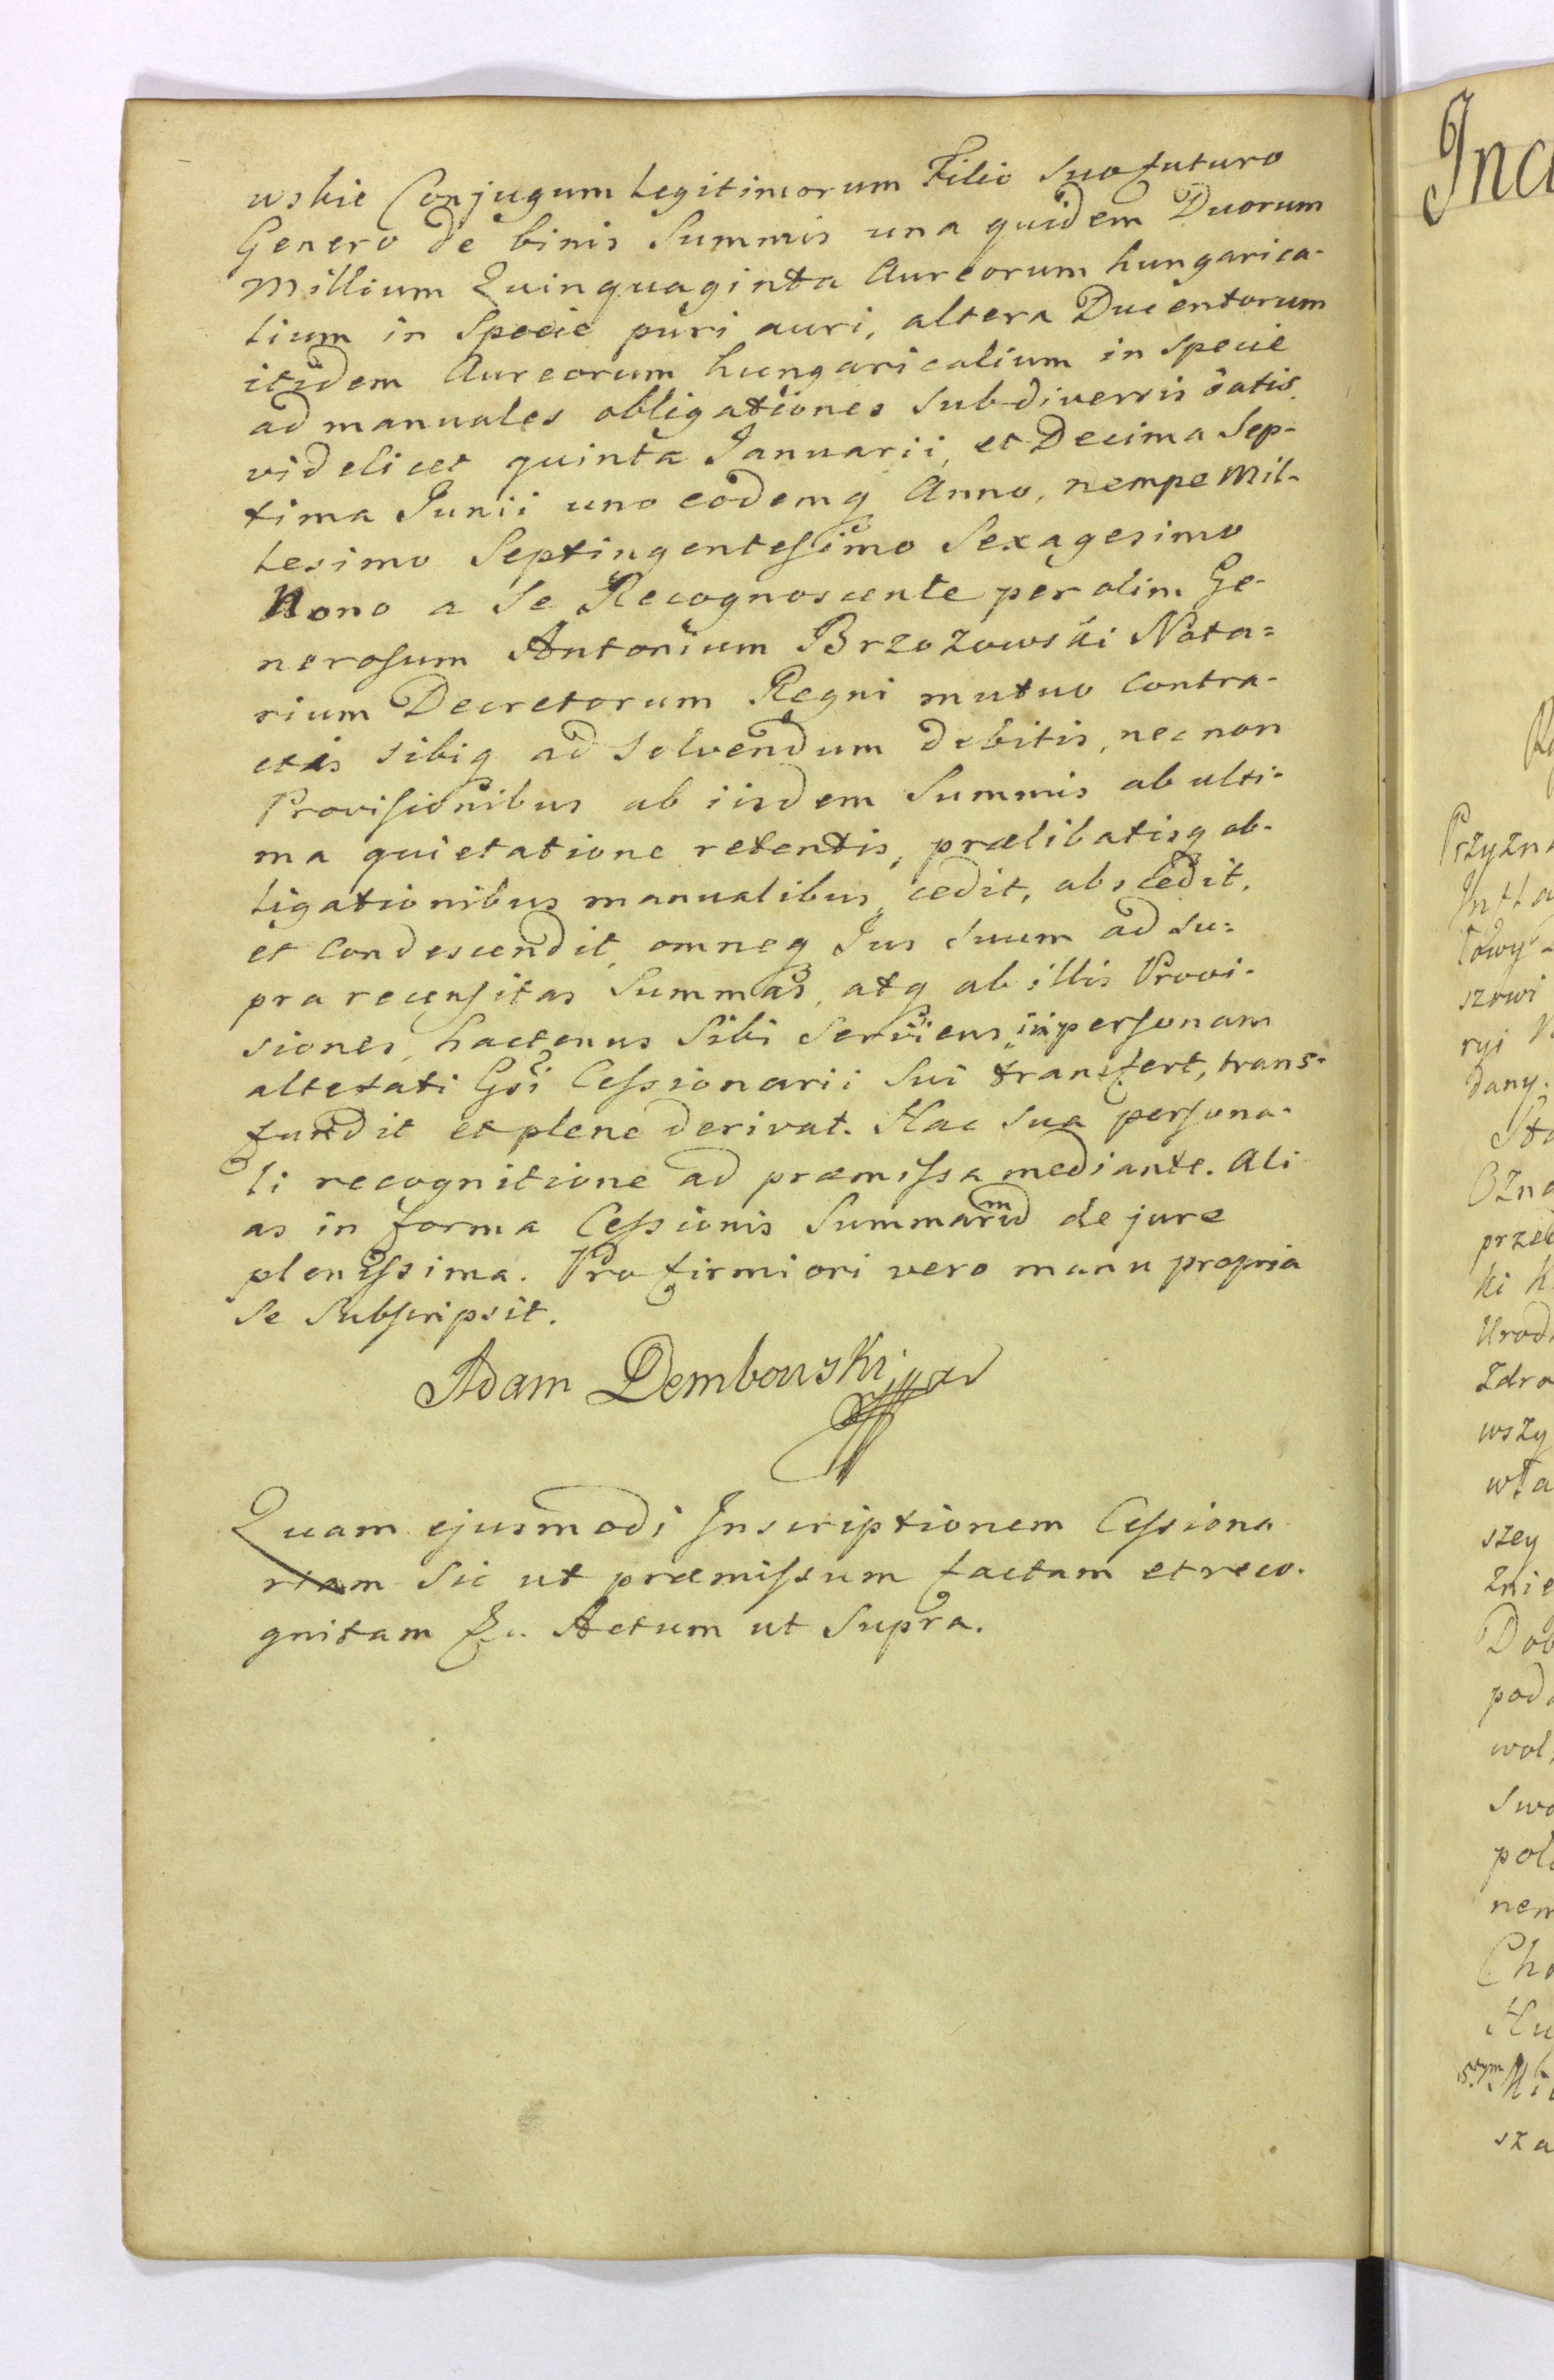 wskie Conjugum Legitimorum Filio Suo futuro
Genero de binis Summis una quidem Duorum
Millium Quinquaginta Aureorum hungarica-
lium in Specie puri auri, altera Ducentorum
itidem Aureorum hungaricalium in specie
ad manuales obligationes sub diversis datis,
videlicet quinta Januarii, et Decima Sep-
tima Junii uno eodemq Anno, nempe Mil-
lesimo Septingentesimo Sexagesimo
Nono a Se Recognoscente per olim Ge-
nerosum Antonium Brzozowski Nota=
rium Decretorum Regni mutuo contra-
ctis sibiq ad Solvendum debitis, nec non
Provisionibus ab iisdem Summis ab ulti-
ma quietatione retentis, prælibatisq ob-
ligationibus manualibus cedit, abscedit,
et condescendit, omneq Jus suum ad su=
pra recensitas Summas, atq ab illis Provi-
siones, hactenus Sibi Serviens, in personam
altefati Gsi Cessionarii Sui transfert, trans-
fundit et plene derivat. Hac Sua persona-
li recognitione ad præmissa mediante. Ali
as in forma Cessionis Summarum de jure
plenissima. Pro firmiori vero manu propria
Se Subscripsit.
Adam Dembowski
Quam ejusmodi Inscriptionem Cessiona
riam Sic ut præmissum factam et reco-
gnitam &c. Actum ut Supra.
Przyzna
szowi
dany.
Ozna
ki K
Urod
Zdro
wszy
wła
szey
Znie
Dob
pod
wol,
Swo
pol
nem
Cho
sza